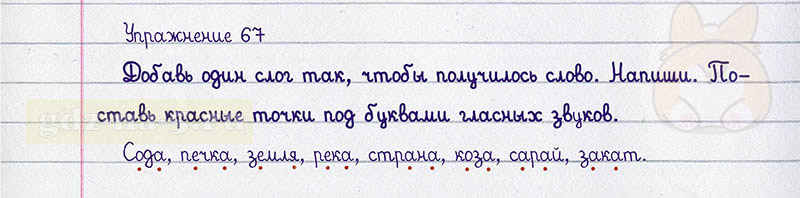 Упражнение 67
Добавь один слог так, чтобы получилось слово. Напиши. По-
ставь красные точки под буквами гласных звуков.
Сода, печка, земля, река, страна, коза, сарай, закат.